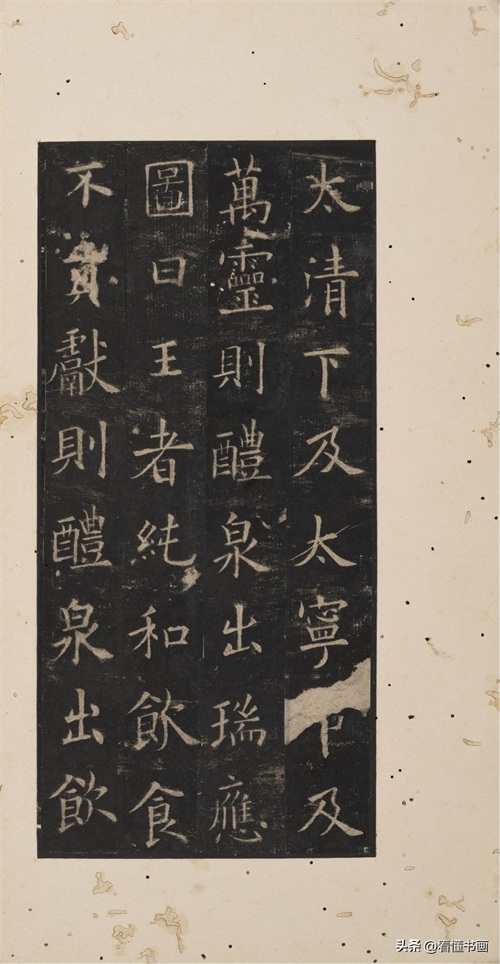 太清下及太寧中及
萬靈則醴泉出瑞應
圖曰王者純和飲食
不貢獻則醴泉出飲
头条 @看懂书画